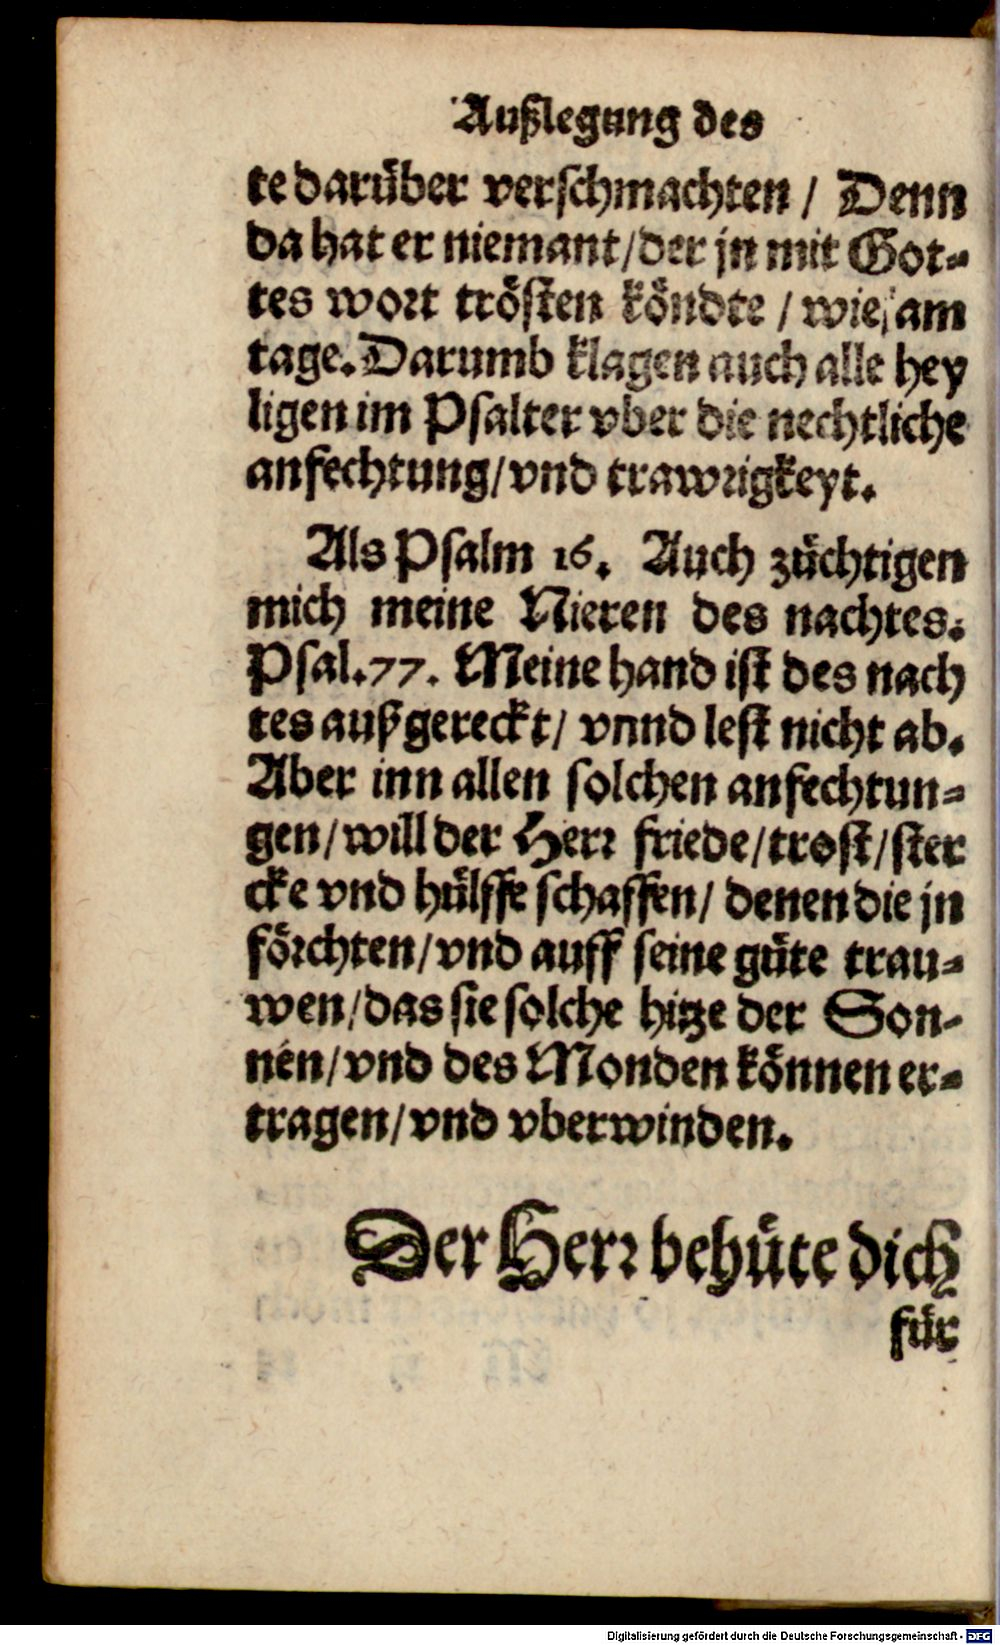 Außlegung des
te darüber verschmachten / Denn
da hat er niemant / der jn mit Got-
tes wort trösten köndte / wie am
tage. Darumb klagen auch alle hey
ligen im Psalter vber die nechtliche
anfechtung / vnd trawrigkeyt.
Als Psalm 16. Auch züchtigen
mich meine Nieren des nachtes.
Psal. 77. Meine hand ist des nach
tes außgereckt / vnnd lest nicht ab.
Aber inn allen solchen anfechtun-
gen / will der Herr friede / trost / ster
cke vnd hülffe schaffen / denen die jn
förchten / vnd auff seine güte trau-
wen / das sie solche hitze der Son-
nen / vnd des Monden können er-
tragen / vnd vberwinden.
Der Herr behüte dich
für
Digitalisierung gefördert durch die Deutsche Forschungsgemeinschaft - DFG